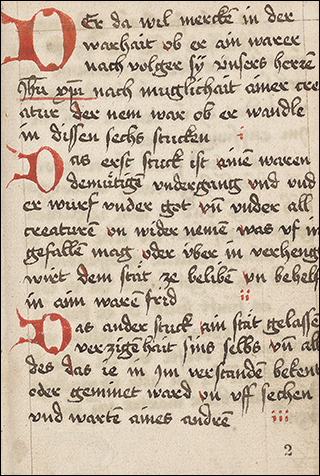 Der da wil mercken in der
warhait ob er ain warer
nach volger sÿ vnsers herren
Jhu xpi nach muglichait ainer cre
atur der nem war ob er wandle
in dissen sechs stucken i
Das erst stuck ist ainen waren
demütigen vndergang vnd vnd
er wurf vnder got vn vnder all
creaturen on wider nemen was vf in
gefallen mag oder vber in verheng
wirt dem stät ze beliben vn behelf
in ain ware frid ii
Das ander stuck ain stät gelassen
verzigenhait sins selbs vn all
des das ie in jm verstanden bekent
oder geminet ward vn vff sechen
vnd warten aines andren iii
2